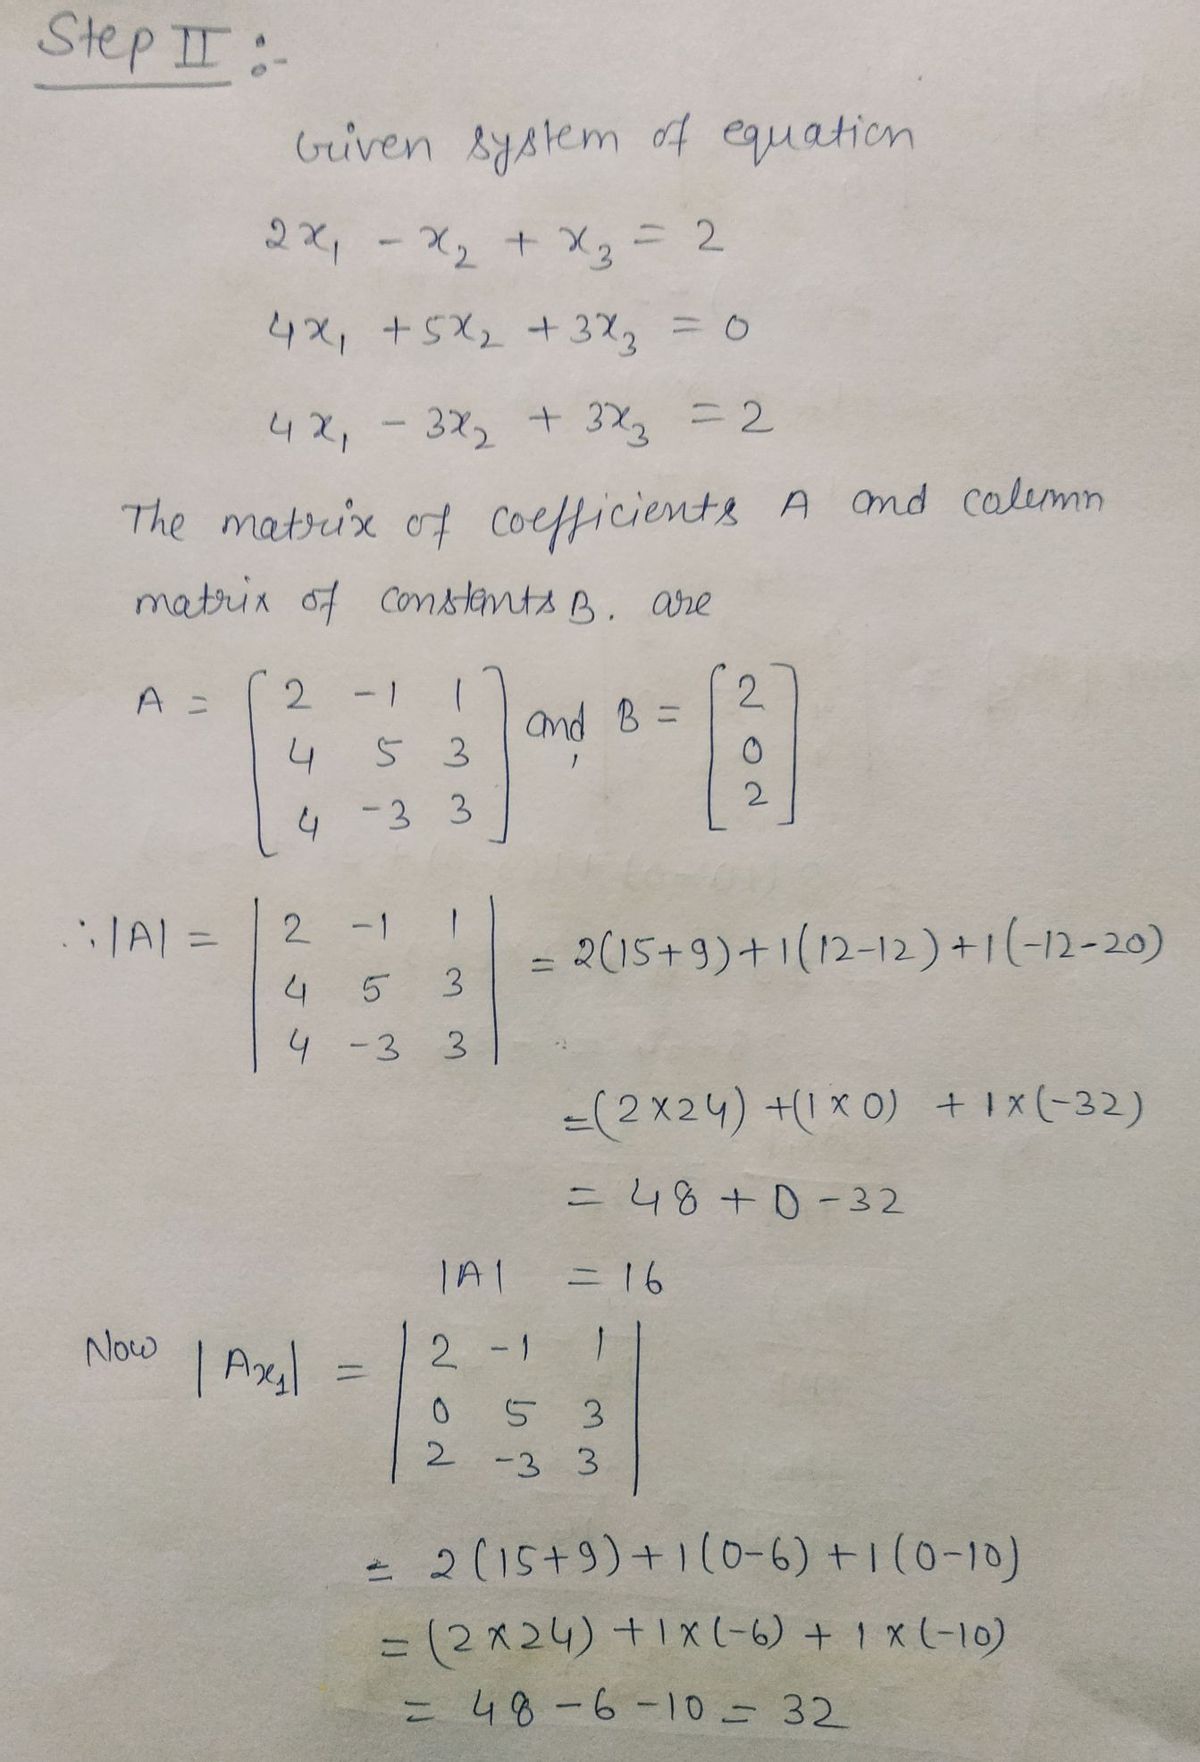 Step II :-
Given system of equation
2x₁ - x₂ + x₃ = 2
4x₁ + 5x₂ + 3x₃ = 0
4x₁ - 3x₂ + 3x₃ = 2
The matrix of coefficients A and column
matrix of constants B. are
A = [ 2 -1 1 ] and, B = [ 2 ]
[ 4 5 3 ] [ 0 ]
[ 4 -3 3 ] [ 2 ]
∴ |A| = | 2 -1 1 | = 2(15+9)+1(12-12)+1(-12-20)
| 4 5 3 |
| 4 -3 3 |
=(2×24) +(1×0) + 1×(-32)
= 48 + 0 - 32
|A| = 16
Now |Ax₁| = | 2 -1 1 |
| 0 5 3 |
| 2 -3 3 |
= 2(15+9)+1(0-6)+1(0-10)
= (2×24) + 1×(-6) + 1×(-10)
= 48 - 6 - 10 = 32